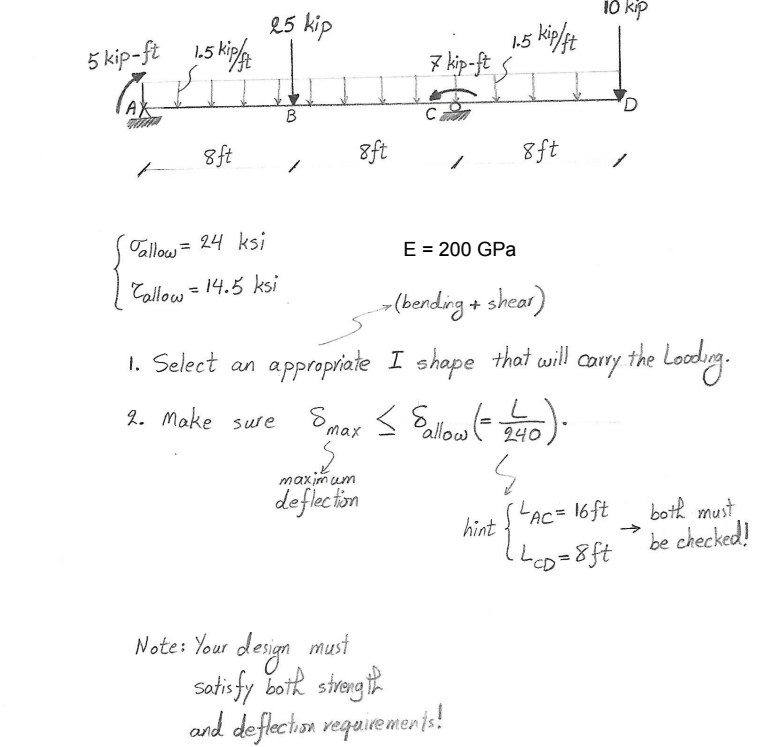 10 kip
25 kip
5 kip-ft 1.5 kip/ft 7 kip-ft 1.5 kip/ft
A B C D
8ft 8ft 8ft
σallow = 24 ksi E = 200 GPa
τallow = 14.5 ksi
(bending + shear)
1. Select an appropriate I shape that will carry the Loading.
2. Make sure δmax ≤ δallow (= L/240).
maximum
deflection
hint { LAC = 16ft → both must
LCD = 8ft be checked!
Note: Your design must
satisfy both strength
and deflection requirements!